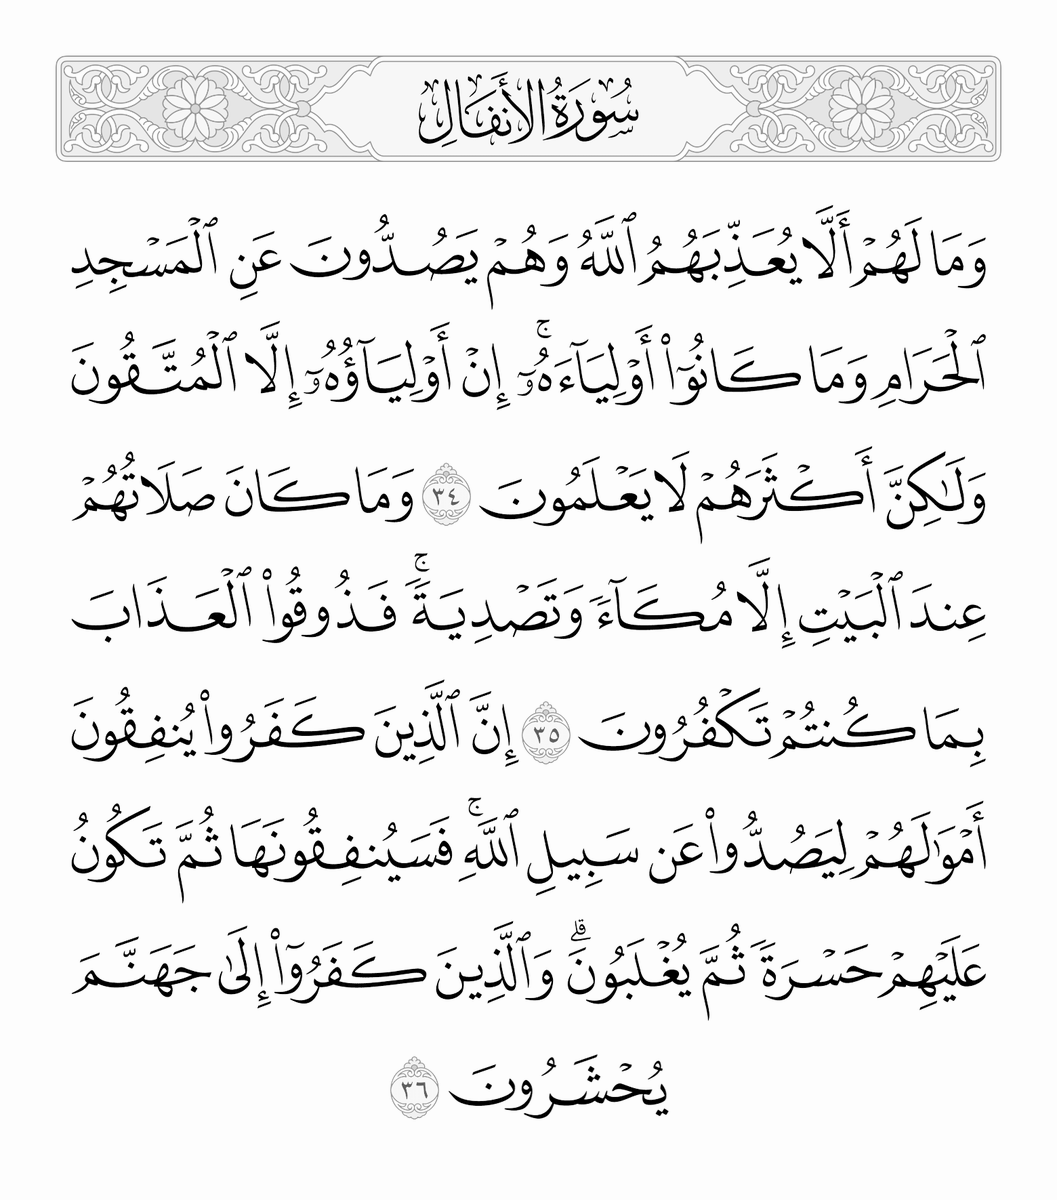 سُورَةُ الأَنفَالِ
وَمَا لَهُمْ أَلَّا يُعَذِّبَهُمُ ٱللَّهُ وَهُمْ يَصُدُّونَ عَنِ ٱلْمَسْجِدِ
ٱلْحَرَامِ وَمَا كَانُوٓا۟ أَوْلِيَآءَهُۥٓ ۚ إِنْ أَوْلِيَآؤُهُۥٓ إِلَّا ٱلْمُتَّقُونَ
وَلَٰكِنَّ أَكْثَرَهُمْ لَا يَعْلَمُونَ ٣٤ وَمَا كَانَ صَلَاتُهُمْ
عِندَ ٱلْبَيْتِ إِلَّا مُكَآءً وَتَصْدِيَةً ۚ فَذُوقُوا۟ ٱلْعَذَابَ
بِمَا كُنتُمْ تَكْفُرُونَ ٣٥ إِنَّ ٱلَّذِينَ كَفَرُوا۟ يُنفِقُونَ
أَمْوَٰلَهُمْ لِيَصُدُّوا۟ عَن سَبِيلِ ٱللَّهِ ۚ فَسَيُنفِقُونَهَا ثُمَّ تَكُونُ
عَلَيْهِمْ حَسْرَةً ثُمَّ يُغْلَبُونَ ۗ وَٱلَّذِينَ كَفَرُوٓا۟ إِلَىٰ جَهَنَّمَ
يُحْشَرُونَ ٣٦